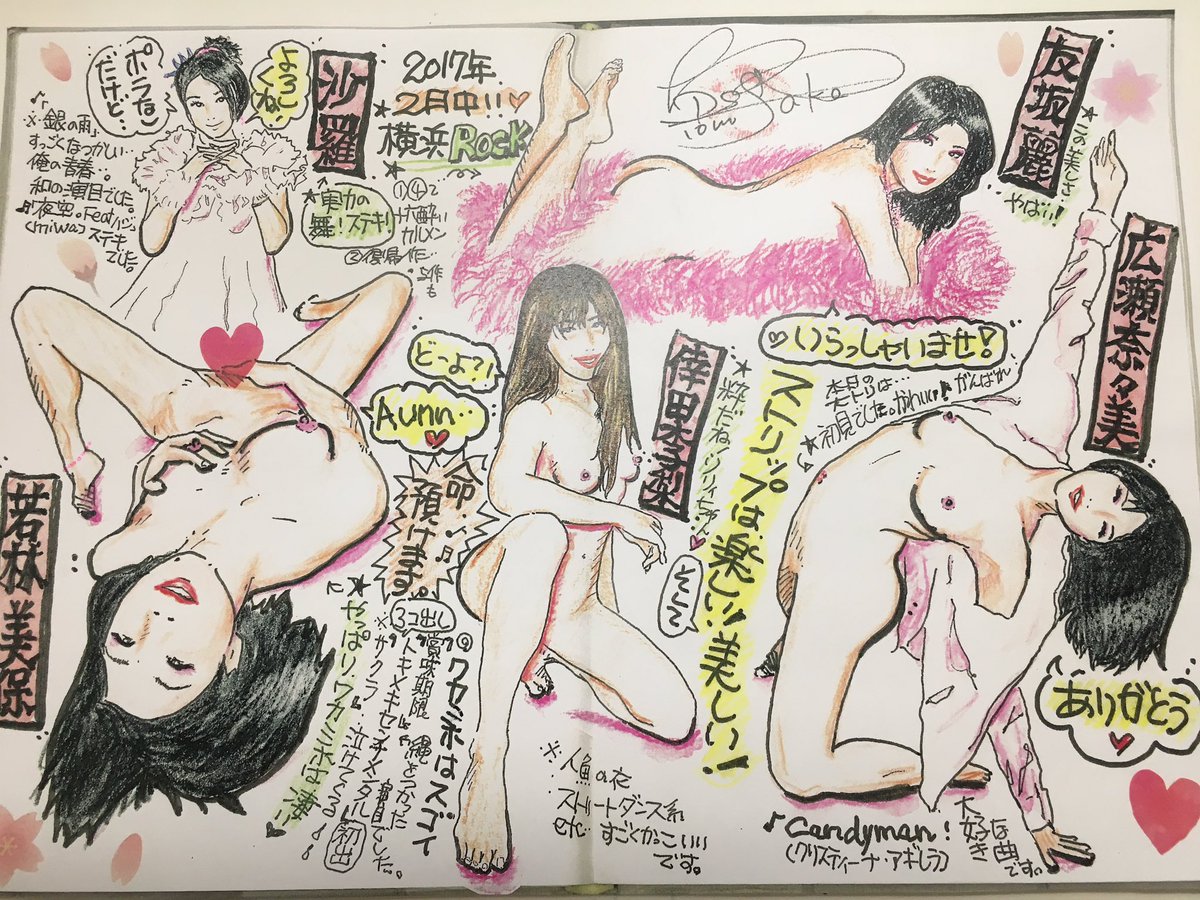 ポラな
だけど…
よろし
くね!
沙羅
2017年
2月中
横浜Rock
※銀の雨
すっごくなつかしい…
俺の青春。
和の演目でした。
夜空。Feat.
(miwa)ステキ
でした。
実力の
舞!ステキ!
①④で
カルメン
友坂麗
この美しさ
やばい!
広瀬奈々美
いらっしゃいませ!
初見でした。かわいい
がんばれ
ストリップは楽しい!美しい!
倖田李梨
粋だね!リリィちゃん
そして
どっよ?!
Aunn…
命
預けます。
若林美保
ワカミホはスゴイ
3コ出し
賞味期限
縄をつかった
演目でした。
トキメキセンチメンタル
初出
※サクラ
泣けてくる
やっぱりワカミホは凄い
※人魚の衣
ストリートダンス系
etc…すごくかっこいい
です。
ありがとう
Candyman!
大好き
な曲
です。
(クリスティーナ・アギレラ)